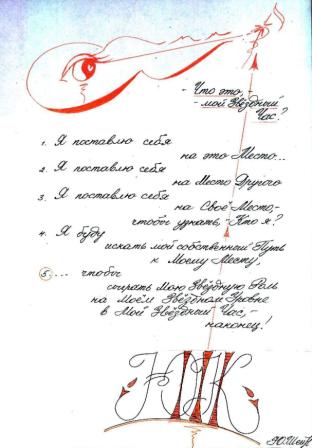 - Что это, -
- мой Звёздный
Час?
1. Я поставлю себя
на это Место...
2. Я поставлю себя
на Место Другого
3. Я поставлю себя
на Своё Место,-
чтобы узнать,- Кто я?
4. Я буду
искать мой собственный Путь
к Моему Месту,
5.... чтобы
сыграть Мою Звёздную Роль
на Моём Звёздном Уровне
в Мой Звёздный Час,-
наконец!